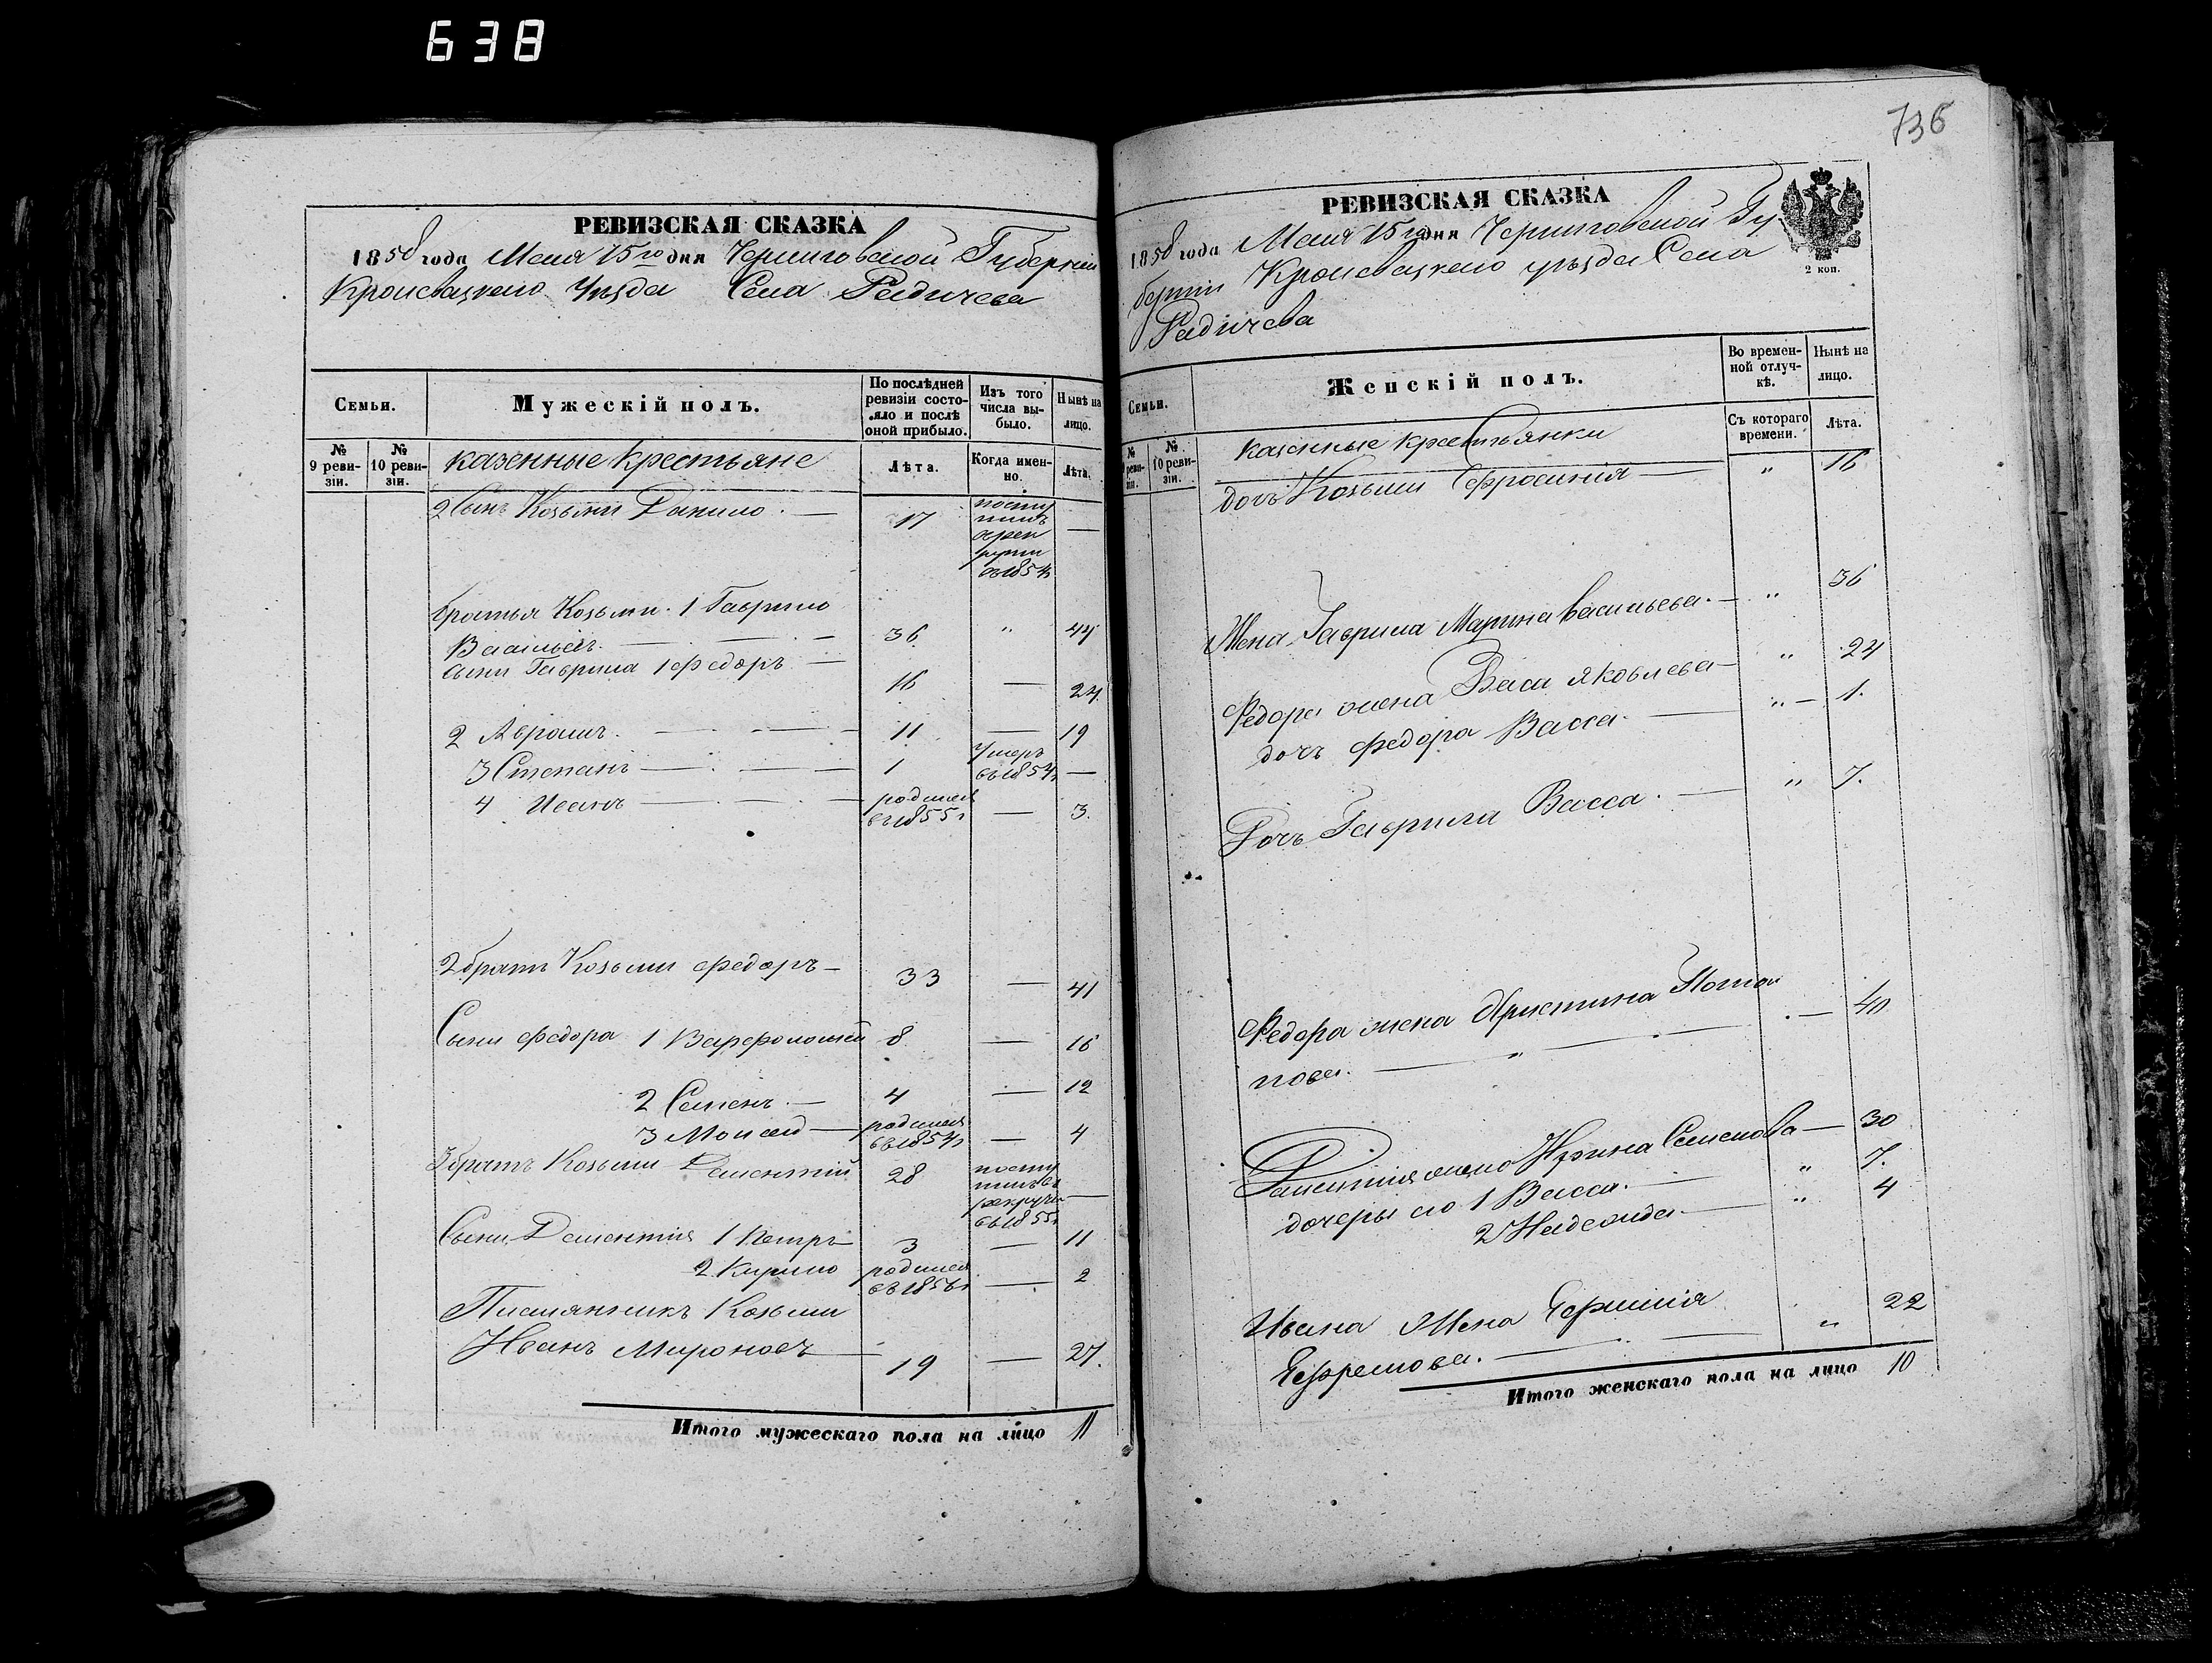 638
736
РЕВИЗСКАЯ СКАЗКА
1858 года Мая 15го дня Черниговской Губернии
Кролевецкаго Уѣзда Села Радичева
Семьи.
Мужескій полъ.
По послѣдней ревизіи состояло и послѣ оной прибыло.
Изъ того числа выбыло.
Нынѣ на лицо.
№ 9 ревизіи.
№ 10 ревизіи.
казенные крестьяне
Лѣта.
Когда именно.
Лѣта.
2 Сынъ Козьми Данило — 17 поступилъ въ рекруты въ 1854 —
братья Козьми. 1 Гаврило
Васильевъ — 36 " 44
Сыны Гаврила 1 Федоръ — 16 — 24
2 Абрамъ — 11 — 19
3 Степанъ — 1 Умеръ въ 1854 —
4 Иванъ — родился въ 1855 — 3.
2 братъ Козьми Федоръ — 33 — 41
Сыны Федора 1 Варфоломей 8 — 16
2 Семенъ — 4 — 12
3 Моисей — родился въ 1854 — 4
3 братъ Козьми Дементій 28 поступилъ въ рекруты въ 1855 —
Сыны Дементія 1 Петръ 3 — 11
2 Кирило родился въ 1856 — 2
Племянникъ Козьми
Иванъ Мироновъ — 19 — 27.
Итого мужескаго пола на лицо 11
РЕВИЗСКАЯ СКАЗКА
1858 года Мая 15го дня Черниговской Гу
берніи Кролевецкаго уѣзда Села
Радичева
2 коп.
Семьи.
Женскій полъ.
Во временной отлучкѣ.
Нынѣ на лицо.
№ 9 ревизіи.
№ 10 ревизіи.
казенные крестьянки
Съ котораго времени.
Лѣта.
дочь Козьми Ефросинія — " 16
Жена Гаврила Марина Васильева. — " 36
Федора жена Васа Яковлева — " 24
дочь Федора Васса. — " — 1.
Дочь Гаврила Васса. — " 7.
Федора жена Христина Пота
пова. — " — 40
Дементія жена Ирина Семенова — 30
дочеры его 1 Васса. — " 7.
2 Надежда — " 4
Ивана Жена Ефимія
Ефремова. — " 22
Итого женскаго пола на лицо 10